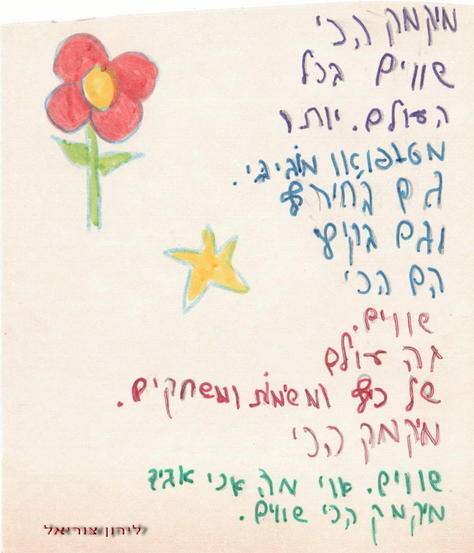 מיקמק הכי
שווים בכל
העולם. יותר
מוגיגי.
גם בחורף
וגם בקיץ
הם הכי
שווים.
זה עולם
של כיף ומשימות ומשחקים.
מיקמק הכי
שווים. אוי מה אני אגיד
מיקמק הכי שווים.
לירון צוריאל